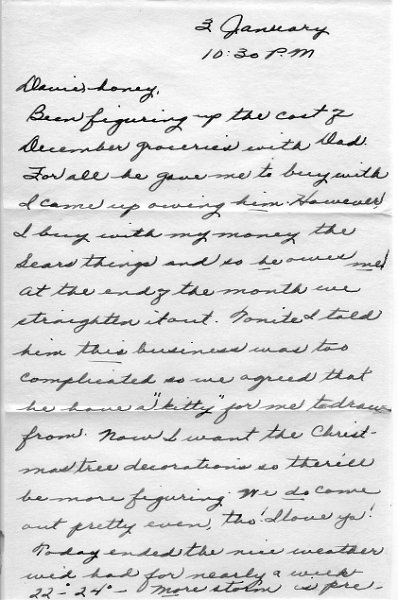 3 January
10:30 P.M
Davie-honey,
Been figuring up the cost of
December groceries with Dad.
For all he gave me to buy with
I came up owing him. However,
I buy with my money the
Sears things and so he owes me!
At the end of the month we
straighten it out. Tonite I told
him this business was too
complicated so we agreed that
he have a "kitty" for me to draw
from. Now I want the Christ-
mas tree decorations so there'll
be more figuring. We do come
out pretty even, tho! I love ya!
Today ended the nice weather
we'd had for nearly a week
22°-24°- More storm is pre-